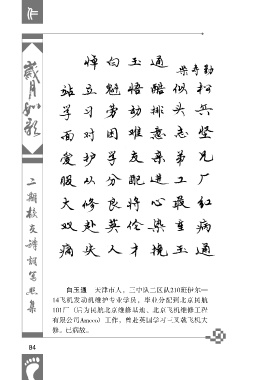 歲月如歌
二期校友诗词
照集
悼白玉通
站立魁梧酷似松
学习劳动排头兵
面对困难意志坚
爱护学友亲弟兄
服从分配进工厂
大修良将心最红
双赴英伦染重病
痛失人才挽玉通
白玉通 天津市人。三中队二区队210班伊尔—
14飞机发动机维护专业学员。毕业分配到北京民航
101厂（后为民航北京维修基地、北京飞机维修工程
有限公司Ameco）工作。曾赴英国学习三叉戟飞机大
修。已病故。
84